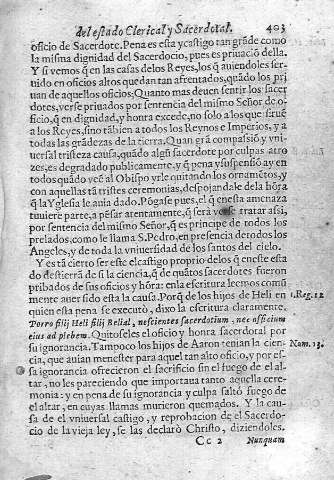 del estado Clerical y Sacerdotal. 403
oficio de Sacerdote. Pena es esta y castigo tan grãde como
la misma dignidad del Sacerdocio, pues es priuaciõ della.
Y si vemos q̃ en las casas de los Reyes, los q̃ auiendoles ser-
uido en oficios altos quedan tan afrentados, quãdo los pri
uan de aquellos oficios; Quanto mas deuen sentir los sacer
dotes, verse priuados por sentencia del mismo Señor de o-
ficio, q̃ en dignidad, y honra excede, no solo a los que siruẽ
a los Reyes, sino tãbien a todos los Reynos e Imperios, y a
todas las grãdezas de la tierra. Quan grã compassiõ y vni-
uersal tristeza causa, quãdo algũ sacerdote por culpas atro
zes, es degradado publicamente, y q̃ pena y suspensiõ ay en
todos quãdo veẽ al Obispo yrle quitando los ornamẽtos, y
con aquellas tã tristes ceremonias, despojandole de la hõra
q̃ la Yglesia le auia dado. Põgase pues, el q̃ en esta amenaza
tuuiere parte, a pẽsar atentamente, q̃ serà verse tratar assi,
por sentencia del mismo Señor, q̃ es principe de todos los
prelados, como le llama S. Pedro, en presencia de todos los
Angeles, y de toda la vniuersidad de los santos del cielo.
Y està cierto ser este el castigo proprio de los q̃ en este esta
do destierrã de si la ciencia, q̃ de quãtos sacerdotes fueron
pribados de sus oficios y hõra: en la escritura leemos comũ
mente auer sido esta la causa. Porq̃ de los hijos de Heli en
quien esta pena se executò, dixo la escritura claramente.
1. Reg. 12
Porro filij Heli filij Belial, nescientes sacerdotium, nec officium
eius ad plebem. Quitoseles el oficio y honra sacerdotal por
su ignorancia. Tampoco los hijos de Aaron tenian la cien-
Num. 13.
cia, que auian menester para aquel tan alto oficio, y por es-
sa ignorancia ofrecieron el sacrificio sin el fuego de el al-
tar, no les pareciendo que importaua tanto aquella cere-
monia: y en pena de su ignorancia y culpa saltò fuego de
el altar, en cuyas llamas murieron quemados. Y la cau-
sa de el vniuersal castigo, y reprobacion de el Sacerdo-
cio de la vieja ley, se las declarò Christo, diziendoles.
Cc 2 Nunquam